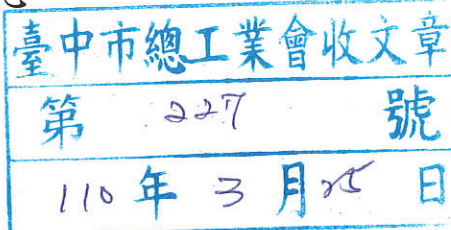 臺中市總工業會收文章
第 227 號
110年 3 月 25 日